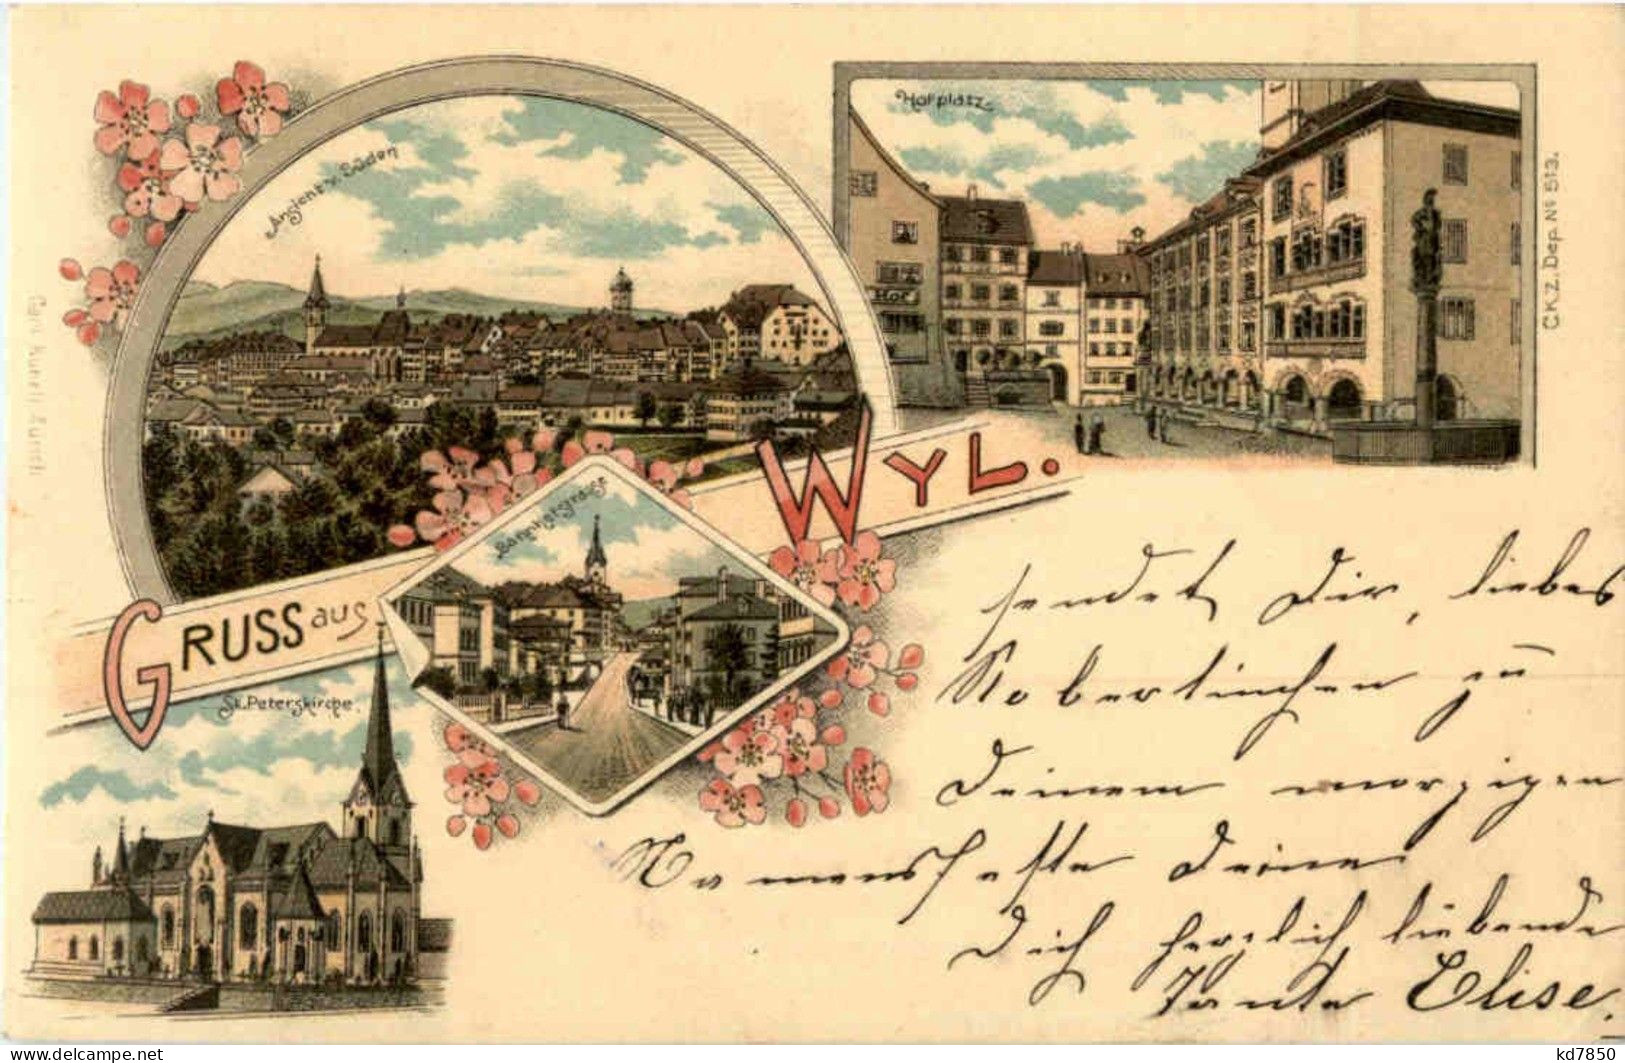 Ansicht v. Süden
Hofplatz
Hof
C.K.Z. Dep. No 513.
Carl Künzli Zürich
GRUSS aus WYL.
Bahnhofstrasse
St. Peterskirche.
sendet Dir, liebes
Robertinchen zu
Deinem morgigen
Namensfeste Deine
Dich herzlich liebende
Tante Elise.
delcampe.net
kd7850